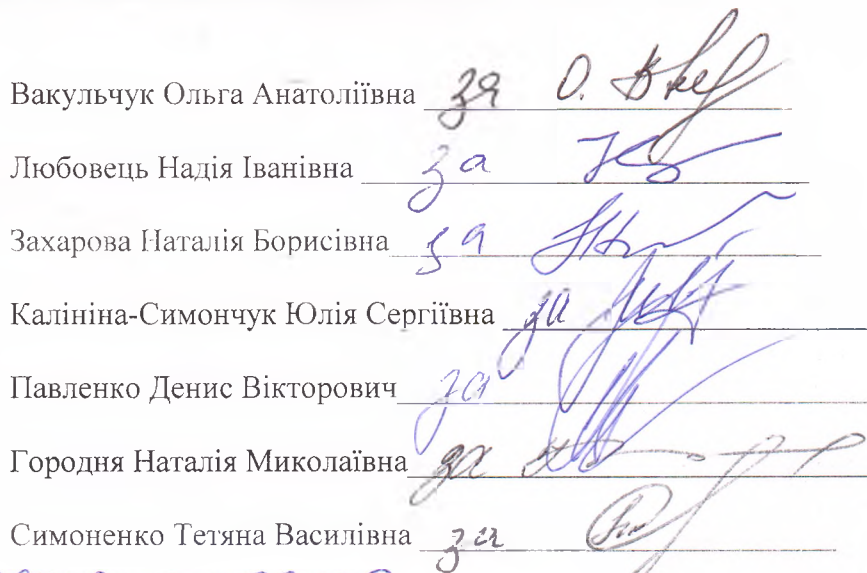 Вакульчук Ольга Анатоліївна за О.
Любовець Надія Іванівна за
Захарова Наталія Борисівна за
Калініна-Симончук Юлія Сергіївна за
Павленко Денис Вікторович за
Городня Наталія Миколаївна за
Симоненко Тетяна Василівна за